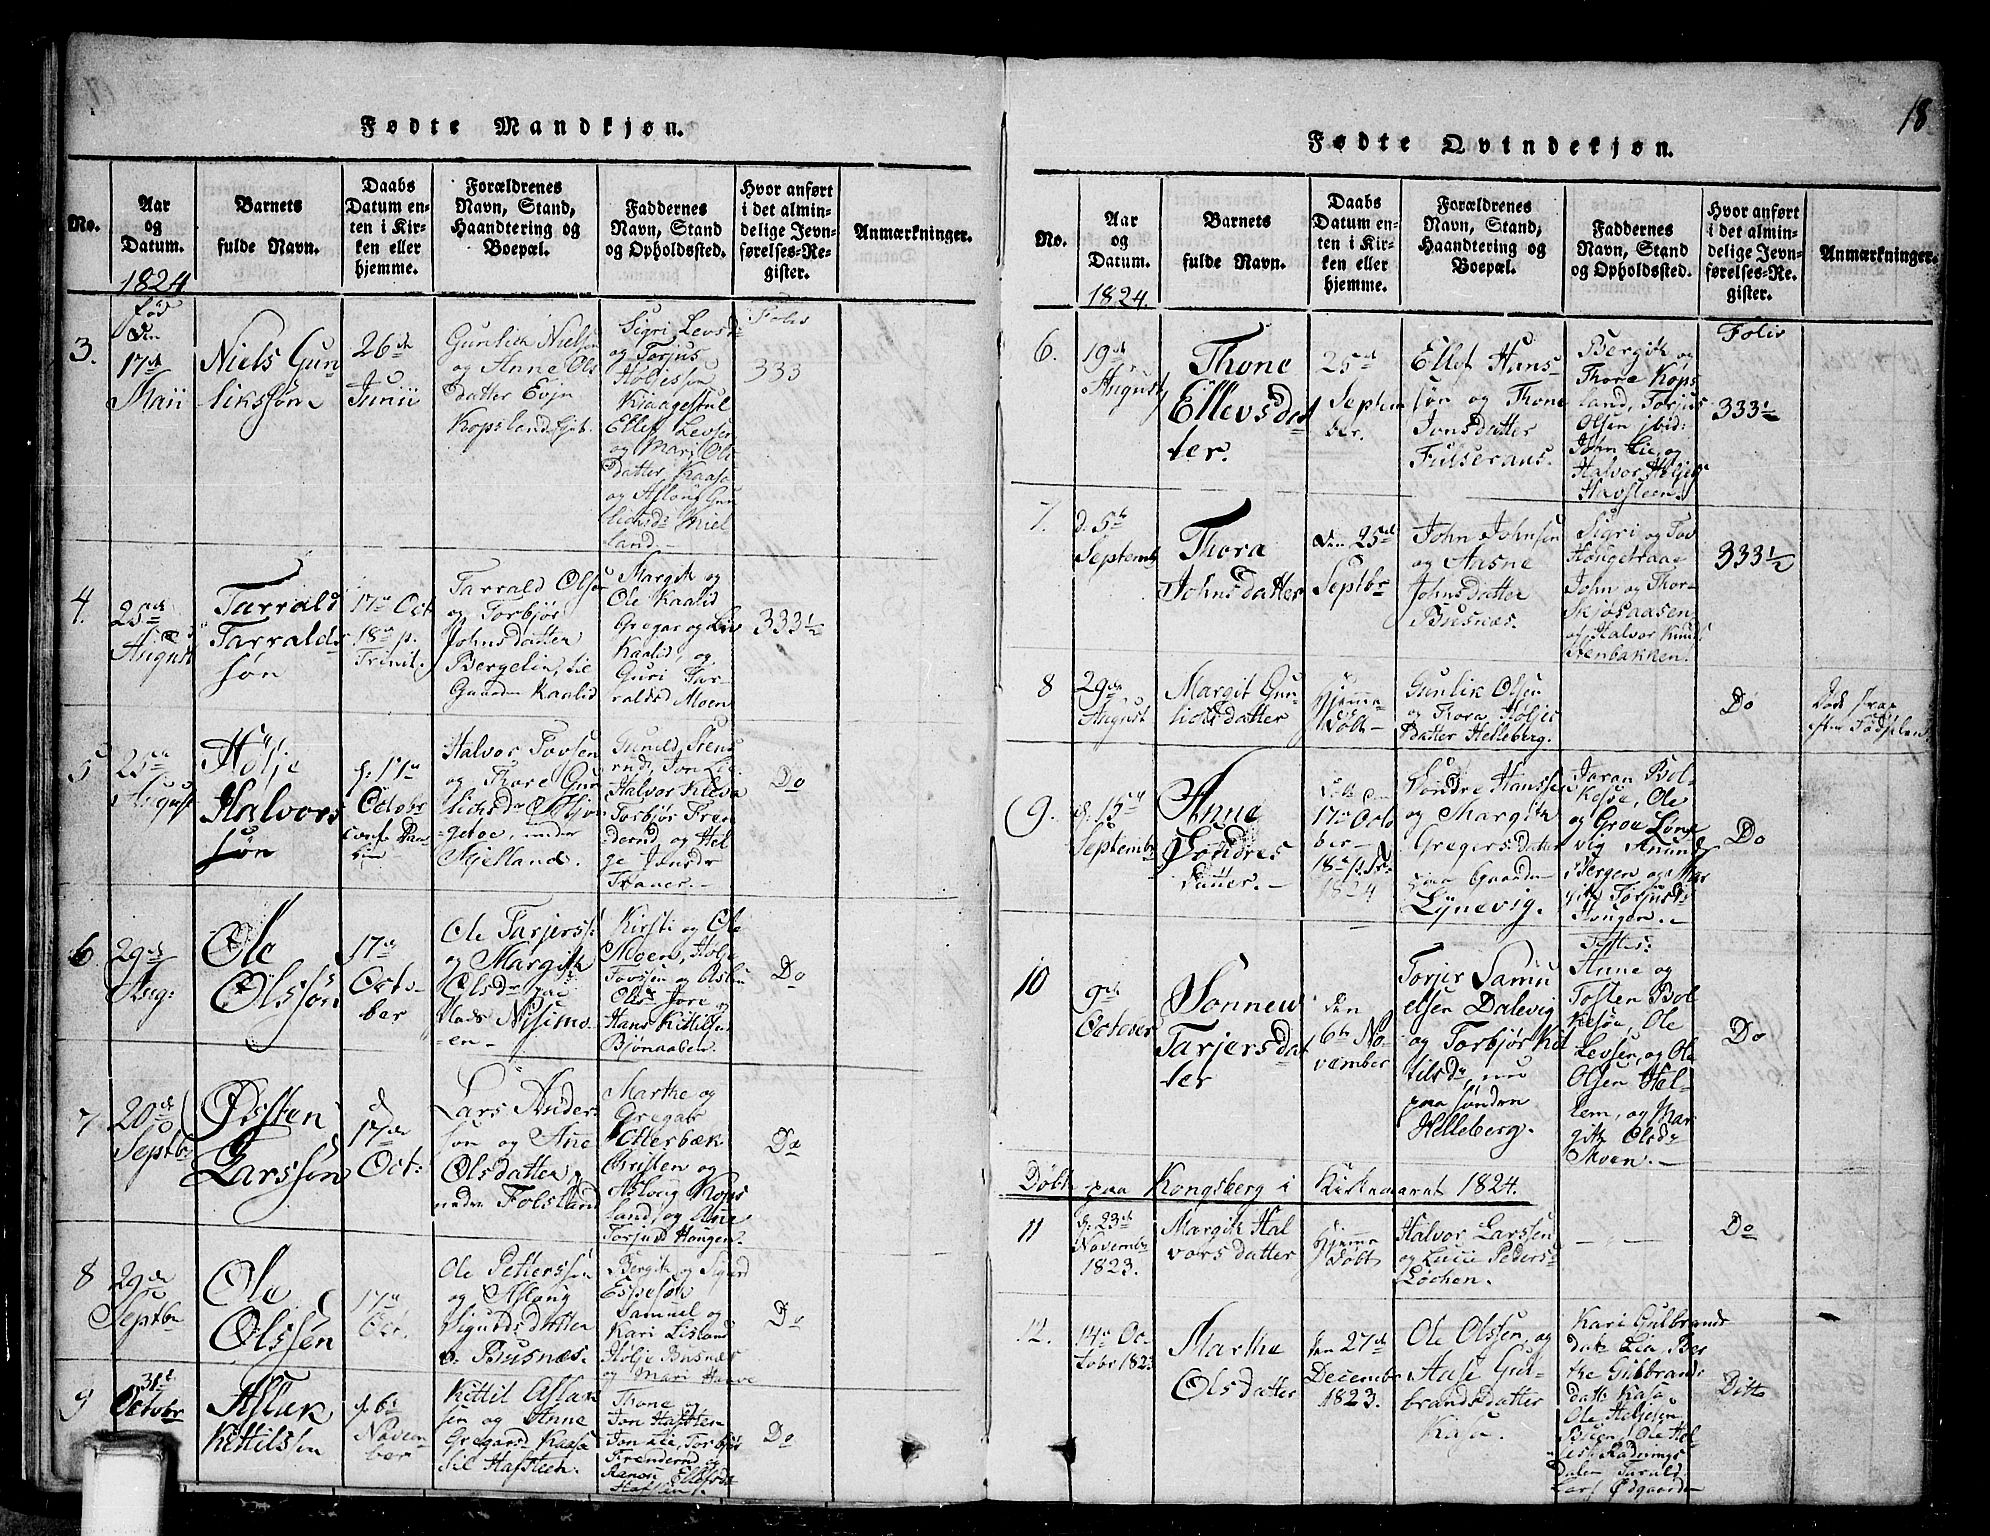 18
Fødte Mandkjøn.
No.
Aar
og
Datum.
1824
Barnets
fulde Navn.
Daabs
Datum en-
ten i Kir-
ken eller
hjemme.
Forældrenes
Navn, Stand,
Haandtering og
Boepæl.
Faddernes
Navn, Stand
og Opholdssted.
Hvor anført
i det almin-
delige Jevn-
førelses-Re-
gister.
Anmærkninger.
3.
fød
den
17de
Maii
Niels Gun
likssøn
26de
Junii
Gunlik Nielsen
og Anne Ols
datter Evjn
Kopsland
Sigri Levsd
og Torjus
Høljessøn
Kjaagestul
Ellef Levsen
og Mari Ole
datter Kaasa
og Aslaug Gun
lichsdr Miel
land
Folio
333
4.
25de
August
Tarrald
Tarralds
søn
17de Oct
18de p.
Trinit.
Tarrald Olsen
og Torbjør
Johnsdatter
Bergelin, til
Gaarden Kaalid
Margit og
Ole Kaalid
Gregar og Liv
Kaalid, og
Guri Tar
ralds Moen
333½
5
25de
August
Hølje
Halvors
søn
d: 17de
Octobr
Halvor Tovsen
og Thore Gun
lichsdr
under
Mjelland.
Gunild
Jon Lie
Halvor Kleva
Torbjør Fren
dernd og Hel
ge
Traaer.
Do
6.
29de
Aug:
Ole
Olssøn
17de
Octo-
ber
Ole Tarjerss
og Margit
Olsdr paa
Plads Nisimo-
en-
Kirsti og Ole
Moen, Hølje
Tovssen og
Olsdr Jore og
Hans Kittilsen
Bjønaaben
Do
7.
20de
Septbr
Østen
Larssøn
d
17de
Oct:
Lars Ander
søn og Ane
Olsdatter
nedre Folsland
Marthe og
Gregar
Otterbæk
Christen og
Asloug Kops
land, og Ane
Torjusd Haugen.
Do
8
29de
Septbr
Ole
Olssen
17de
Oct.
Ole Petterssøn
og Aslaug
Sigurdsdatter
Busnæs.
Bergit og Sigurd
Espesøn
Samuel og
Kari Lisland
Hølje Busnæs
og Mari Haave
Do
9
31te
Octobr
Aslak
Kittilssen
d. 6te
Novem
ber
Kittil Aslak
sen og Anne
Gregard Kaasa
til Hafsteen.
Thone og
Jon Hafsten
Jon Lie, Torbjør
Frendernd og
Ellefsdr
Hafsten
Do
Fødte Qvindekjøn.
No.
Aar
og
Datum.
1824.
Barnets
fulde Navn.
Daabs
Datum en-
ten i Kir-
ken eller
hjemme.
Forældrenes
Navn, Stand,
Haandtering og
Boepæl.
Faddernes
Navn, Stand
og Opholdssted.
Hvor anført
i det almin-
delige Jevn-
førelses-Re-
gister.
Anmærkninger.
6.
19de
August
Thone
Ellevsdat
ter.
25de
Septem
ber.
Ellef Hans-
søn og Thone
Jonsdatter
Fulseraas.
Bergit og
Thore Kops
land, Torjus
Olsen ibid:
John Lie, og
Halvor Høljes
Havsteen.
Folio
333½
7.
d. 5te
Septemb
Thora
Johnsdatter
den 25de
Septbr
John Johnsen
og Aasne
Johnsdatter
Busnæs.
Sigri og Tov
Hougetraae
John og Thor
Skjøsaasen
og Halvor Knud
Stenbakken.
333½
8
29de
August
Margit Gun
lichsdatter
Hjemme
døbt
Gunlik Olsen
og Thora Høljes
datter Helleberg.
Do
Døde strax
efter Fødselen
9.
d. 15de
Septembr
Anne
Søndres
datter.
17de Octo
ber
18de p. Tr.
1824
Søndre Hanssen
og Margit
Gregersdatter
paa Gaarden
Lynevig.
Jaran Bol
kesøe, Ole
og Groe Løne
vig Anund
Bergen og Mar
git Torjusd:
Haugen.
Do
10
9de
October
Sonnew
Tarjersdat
ter
den
6te No
vember
Torjer Samu
elsen Dalevig
og Torbjør Kit
tilsdr, nu
paa søndre
Helleberg.
Anne og
Tosten Bol
kesøe, Ole
Levsen, og Ole
Olsen Hal-
lem, og Mar
git Olsdr
Moen.
Do
Døbt paa Kongsberg i Kirkeaaret 1824.
11
d. 23de
Novembr
1823.
Margit Hal
vorsdatter
Hjemme
døbt
Halvor Larssen
og Lucie Peders-
Løchen.
Do
12.
14de Oc-
tobr 1823
Marthe
Olsdatter
den 27de
Decembr
1823.
Ole Olssen, og
Aase Gul-
brandsdatter
Kasa.
Kari Gulbrands
datr Lia Ber
the Gulbrands
datter Kasa
Ole Heljesen
Ole
Dalen Tarald
Lars Ødgaarden
Ditto